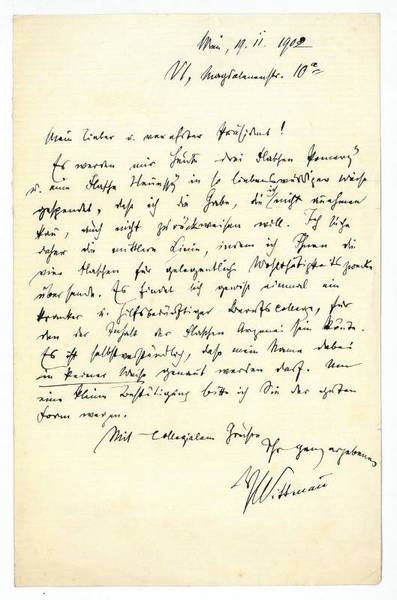 Wien, 19. II. 1902
VI, Magdalenenstr. 10a
Mein lieber u. verehrter Präsident!
Es werden mir heute drei Flaschen Pomery
u. eine Flasche Hennessy in so liebenswürdiger Weise
gespendet, dass ich die Gabe, die ich nicht annehmen
kann, auch nicht zurückweisen will. Ich suche
daher die mittlere Linie, indem ich Ihnen die
vier Flaschen für gelegentliche Wohlthätigkeitszwecke
übersende. Es findet sich gewiss einmal ein
kranker u. hilfsbedürftiger Berufscollege, für
den der Inhalt der Flaschen Arznei sein könnte.
Es ist selbstverständlich, dass mein Name dabei
in keiner Weise genannt werden darf. Um
eine kleine Bestätigung bitte ich Sie der guten
Form wegen.
Mit collegialem Grusse
Ihr ganz ergebener
Wittmann